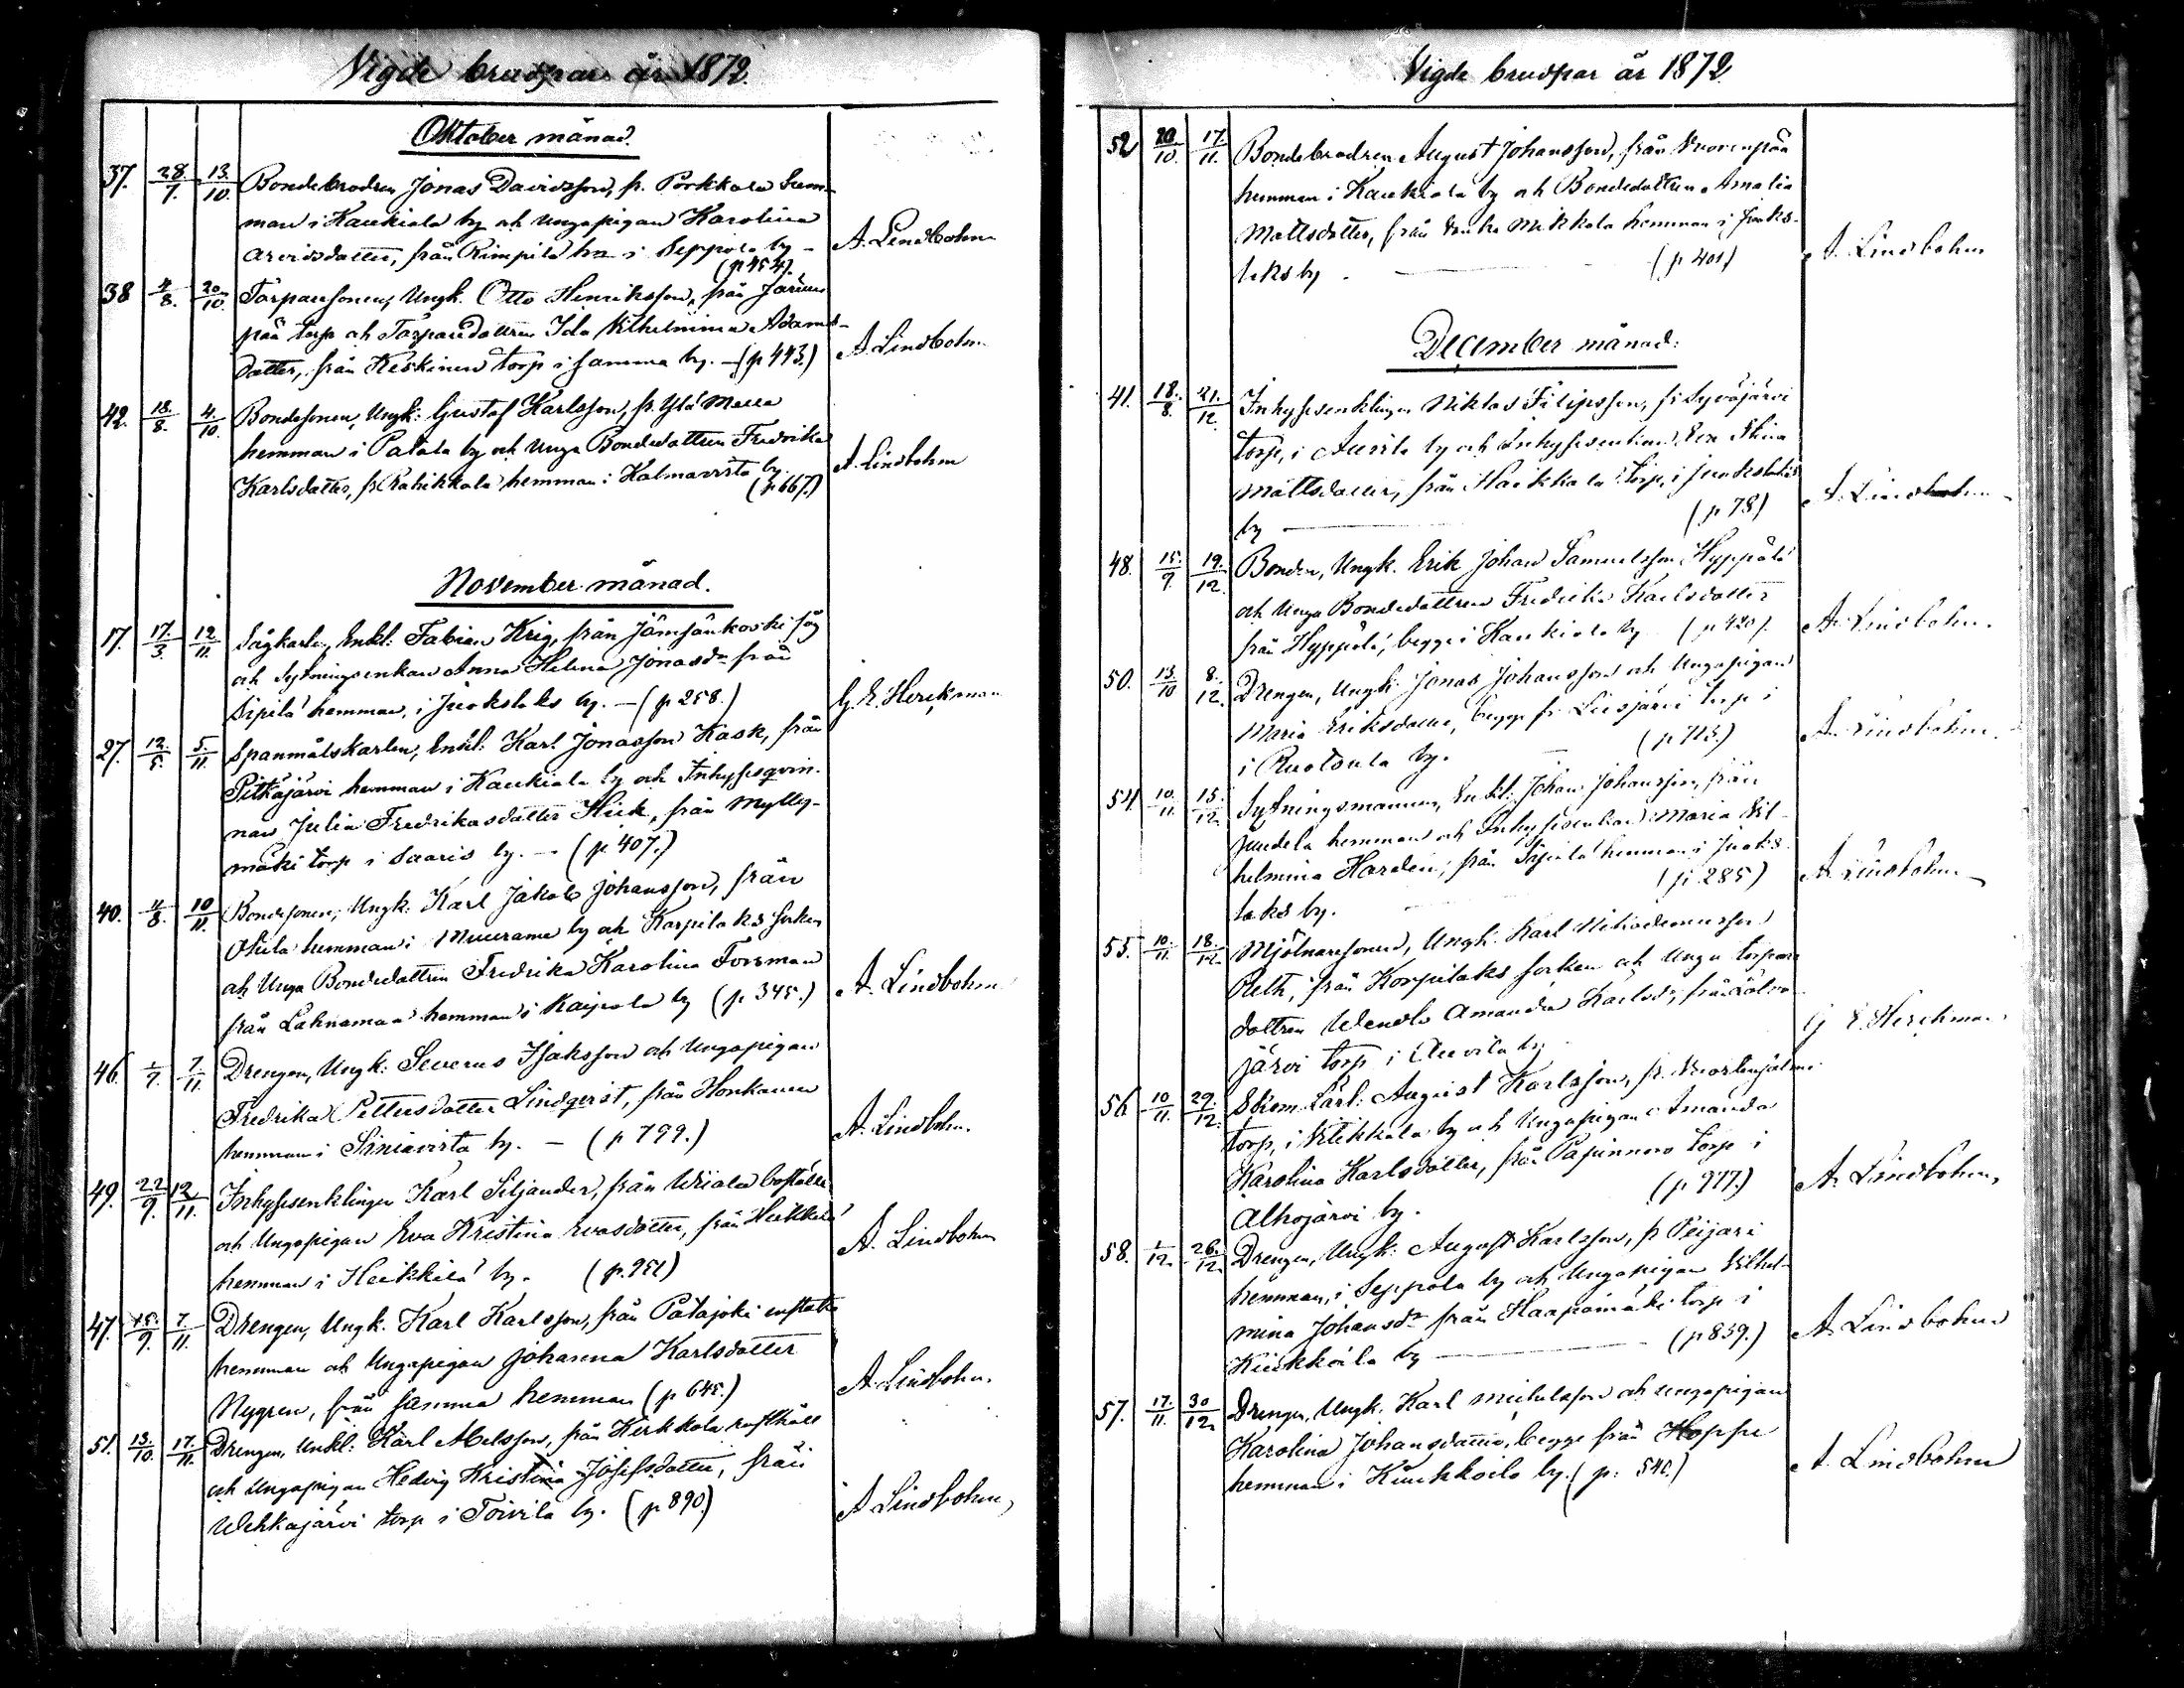 Vigde brudpar år 1872.
Oktober månad.
37. 28/7. 13/10. Bondebrodren Jonas Davidsson, fr. Porkkala hem-
man i Kaukiala by och Ungapigan Karolina
Arvidsdotter, från Rimpilä hn i Seppola by - A. Lindbohm
(p 454).
38 4/8. 20/10. Torparesonen, Ungk. Otto Henriksson, från
pää torp och Torparedottren Ida Vilhelmina Adams-
dotter, från Keskinen torp i samma by. - (p 443.) A. Lindbohm
42. 18/8. 4/10. Bondesonen, Ungk: Gustaf Karlsson, fr. Ylä
hemman i Patala by och Unga Bondedottren Fredrika
Karlsdotter, fr. Rahikkala hemman i Kalmavirta by. A. Lindbohm
(p 667.)
November månad.
17. 17/3. 12/11. Sågkarlen, Enkl: Fabian Krig, från Jämsänkoski såg
och Sytningsenkan Anna Helena Jonasdr från
Sipilä hemman, i Juokslaks by. - (p 258.) G. E. Herckman
27. 12/5. 5/11. Spanmålskarlen, Enkl: Karl Jonasson Kask, från
Pitkäjärvi hemman i Kaukiala by och Inhysesqvin-
nan Julia Fredrikasdotter Hiek, från Mylly-
mäki torp i Saaris by. - (p 407.)
40. 4/8. 10/11. Bondesonen, Ungk: Karl Jakob Johansson, från
hemman i Muurame by och Korpilaks socken
och Unga Bondedottren Fredrika Karolina Forsman
från Lahnaman hemman i Kaipola by (p 345.) A. Lindbohm
46. 1/9. 7/11. Drengen, Ungk: Severus Isaksson och Ungapigan
Fredrika Pettersdotter Lindqvist, från Honkanen
hemman i Siniavirta by. - (p 799.) A. Lindbohm.
49. 22/9. 12/11. Inhysesenklingen Karl Siljander, från Wiiala boställe
och Ungapigan Eva Kristina Evasdotter, från Heikkilä
hemman i Heikkilä by. (p. 951) A. Lindbohm
47. 15/9. 7/11. Drengen, Ungk. Karl Karlsson, från Patajoki
hemman och Ungapigan Johanna Karlsdotter
Nygren, från samma hemman (p 645.) A. Lindbohm.
51. 13/10. 17/11. Drengen, Enkl: Karl Abelsson, från Kirkkola rusthåll
och Ungapigan Hedvig Kristina Josefsdotter, från
Wehkajärvi torp i Toivila by. (p 890.) A Lindbohm,
Vigde brudpar år 1872
52 20/10. 17/11. Bondebrodren August Johansson, från Vuorenpää
hemman i Kaukiala by och Bondedottren Amalia
Mattsdotter, från Mikkola hemman i Juoks-
laks by - (p 401) A. Lindbohm
December månad:
41. 18/8. 21/12. Inhysesenklingen Niklas Filipsson, fr Syväjärvi
torp, i Auvila by och Inhysesenkan Eva Stina
Mattsdotter, från Haikkala torp, i Juokslaks
by - (p 78) A. Lindbohm
48. 15/9. 19/12. Bonden, Ungk. Erik Johan Samuelsson Hyppölä
och Unga Bondedottren Fredrika Karlsdotter
från Hyppölä, begge i Kaukiala by (p 420). A. Lindbohm.
50. 13/10 8./12. Drengen, Ungk: Jonas Johansson och Ungapigan
Maria Eriksdotter, begge fr. Liesjärvi torp i
i Ruotsula by. (p 713.) A. Lindbohm.
54. 10./11. 15./12. Sytningsmannen, Enkl: Johan Johansson, från
Jundela hemman och Inhysesenkan Maria Vil-
helmina Hardén, från Sipilä hemman i Juoks-
laks by. (p 285) A. Lindbohm
55. 10./11. 18./12. Mjölnaresonen, Ungk. Karl Nikodemusson
Reth, från Korpilaks socken och Unga torpare
dottren Wendla Amanda Karlsdr, från
järvi torp i Auvila by G E. Herckman
56. 10/11. 29./12. Skom. Lärl: August Karlsson, fr.
torp, i Vitikkala by och Ungapigan Amanda
Karolina Karlsdotter, från Pajunnevo torp i
Alhojärvi by. (p 977.) A. Lindbohm,
58. 1/12. 26./12. Drengen, Ungk: August Karlsson, fr Peijari
hemman, i Seppola by och Ungapigan Vilhel-
mina Johansdr från Haapamäki torp i
Kuukkoila by - (p 839.) A. Lindbohm
57. 17./11. 30/12. Drengen, Ungk. Karl Mickelsson och Ungapigan
Karolina Johansdotter, begge från Hoppe
hemman i Kuukkoila by. (p. 540.) A. Lindbohm